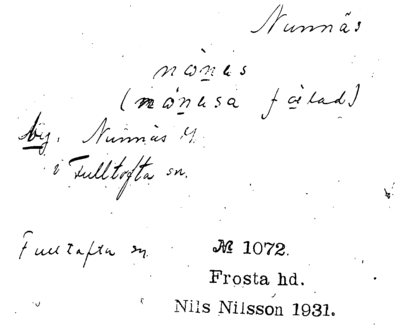 Nunnäs
nònus
(nònusa fàlad)
by. Nunnäs
i Fulltofta sn.
Fulltofta sn
№ 1072.
Frosta hd.
Nils Nilsson 1931.